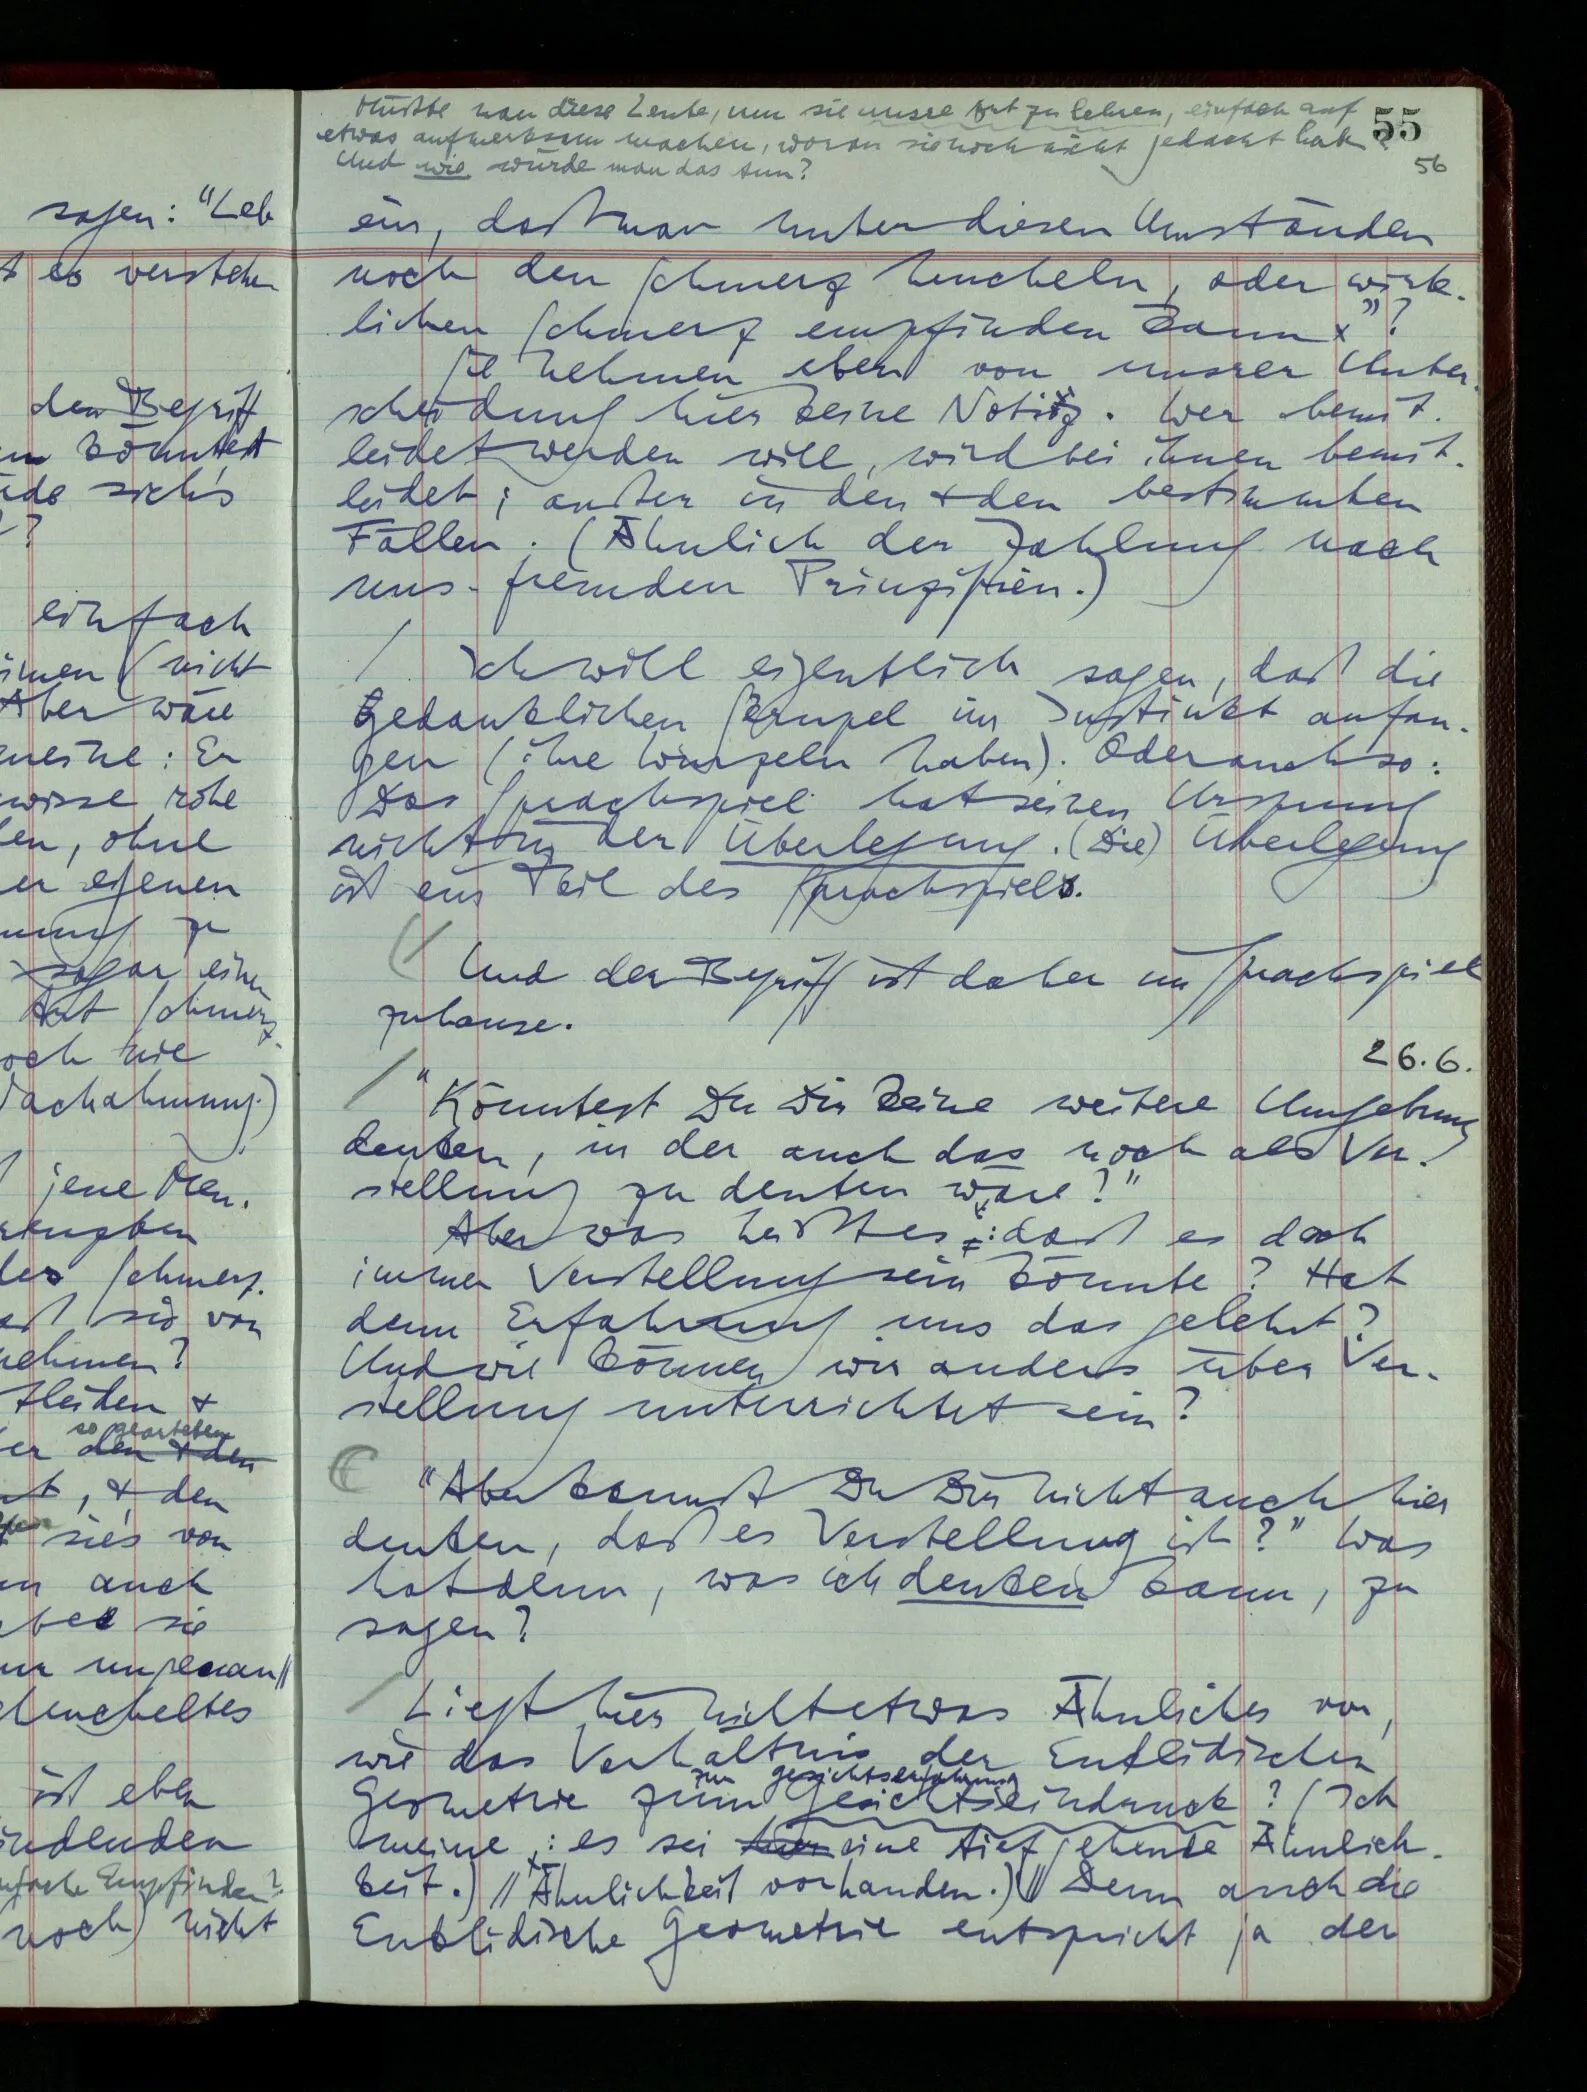 sagen: "Leb
t es verstehen
den Begriff
könntest
sich's
?
einfach
(nicht
Aber wäre
meine: Er
gewisse rohe
en, ohne
er eigenen
zu
sogar einen
Art Schmerz
noch nie
Nachahmung.)
jene Men-
des Schmerz-
von
nehmen?
so gearteten
er den + den
, + den
sie's von
auch
sie
ungenau //
ist eben
Empfinden?
noch) nicht
Müßte man diese Leute, um sie unsre Art zu lehren, einfach auf
etwas aufmerksam machen, woran sie noch nicht gedacht hab
Und wie würde man das tun?
55
56
ein, daß man unter diesen Umständen
noch den Schmerz heucheln, oder wirk-
lichen Schmerz empfinden kann"?
Sie nehmen eben von unsrer Unter-
scheidung hier keine Notiz. Wer bemit-
leidet werden will, wird bei ihnen bemit-
leidet; außer in den + den bestimmten
Fällen. (Ähnlich der Zahlung nach
uns fremden Prinzipien.)
/ Ich will eigentlich sagen, daß die
gedanklichen Skrupel im Instinkt anfan-
gen (ihre Wurzeln haben). Oder auch so:
Das Sprachspiel hat seinen Ursprung
nicht in der Überlegung. (Die) Überlegung
ist ein Teil des Sprachspiels.
Und der Begriff ist daher im Sprachspiel
zuhause.
26.6.
/ "Könntest Du Dir keine weitere Umgebung
denken, in der auch das noch als Ver-
stellung zu deuten wäre?"
Aber was heißt es: daß es doch
immer Verstellung sein könnte? Hat
denn Erfahrung uns das gelehrt?
Und wie können wir anders über Ver-
stellung unterrichtet sein?
"Aber kannst Du Dir nicht auch hier
denken, daß es Verstellung ist?" Was
hat denn, was ich denken kann, zu
sagen?
/ Liegt hier nicht etwas Ähnliches vor,
wie das Verhältnis der Euklidischen
zur Gesichtserfahrung
Geometrie zum Gesichtseindruck? (Ich
meine: es sei hier eine tiefgehende Ähnlich-
keit.) // Ähnlichkeit vorhanden.) // Denn auch die
Euklidische Geometrie entspricht ja der